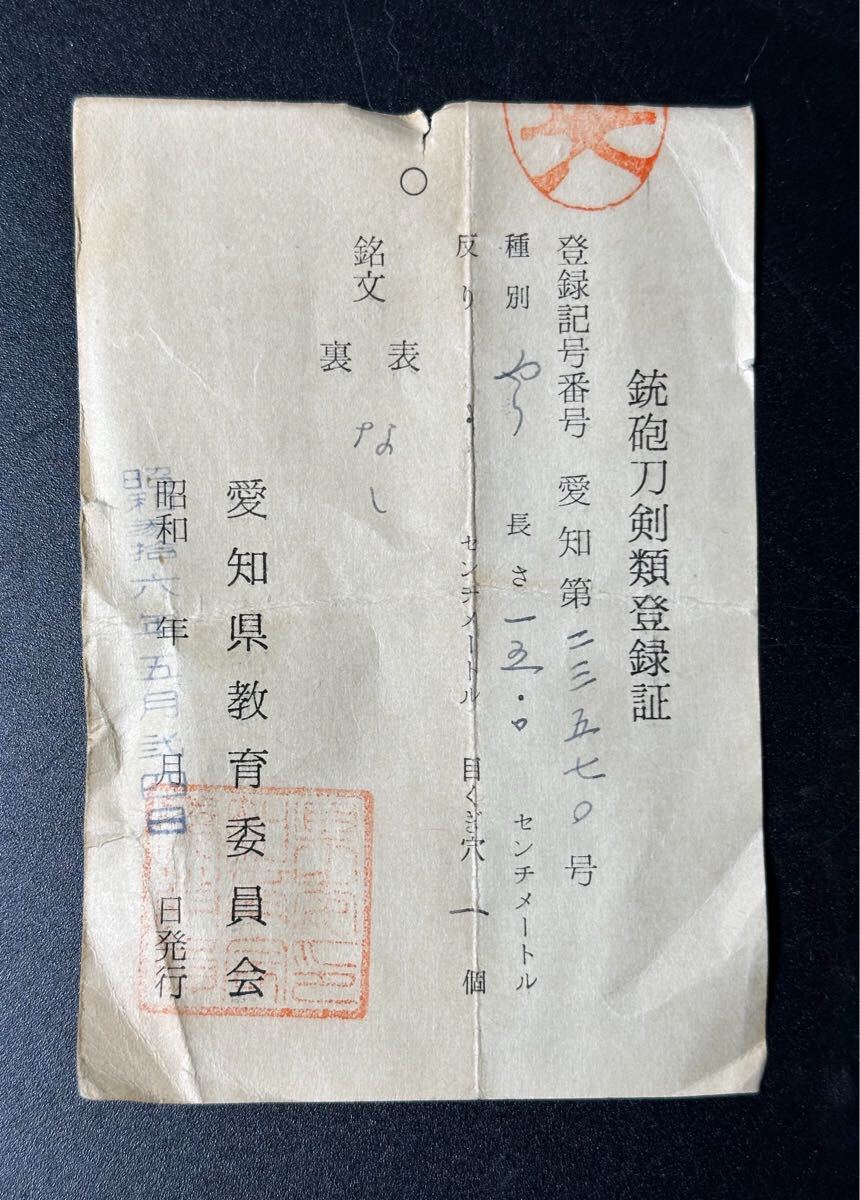 銃砲刀剣類登録証
登録記号番号 愛知第二三五七〇号
種別 やり 長さ 一五・〇 センチメートル
反り ・ センチメートル 目くぎ穴 一 個
銘文
表
なし
裏
愛知県教育委員会
昭和 年 月 日発行
昭和参拾六年五月弐四日